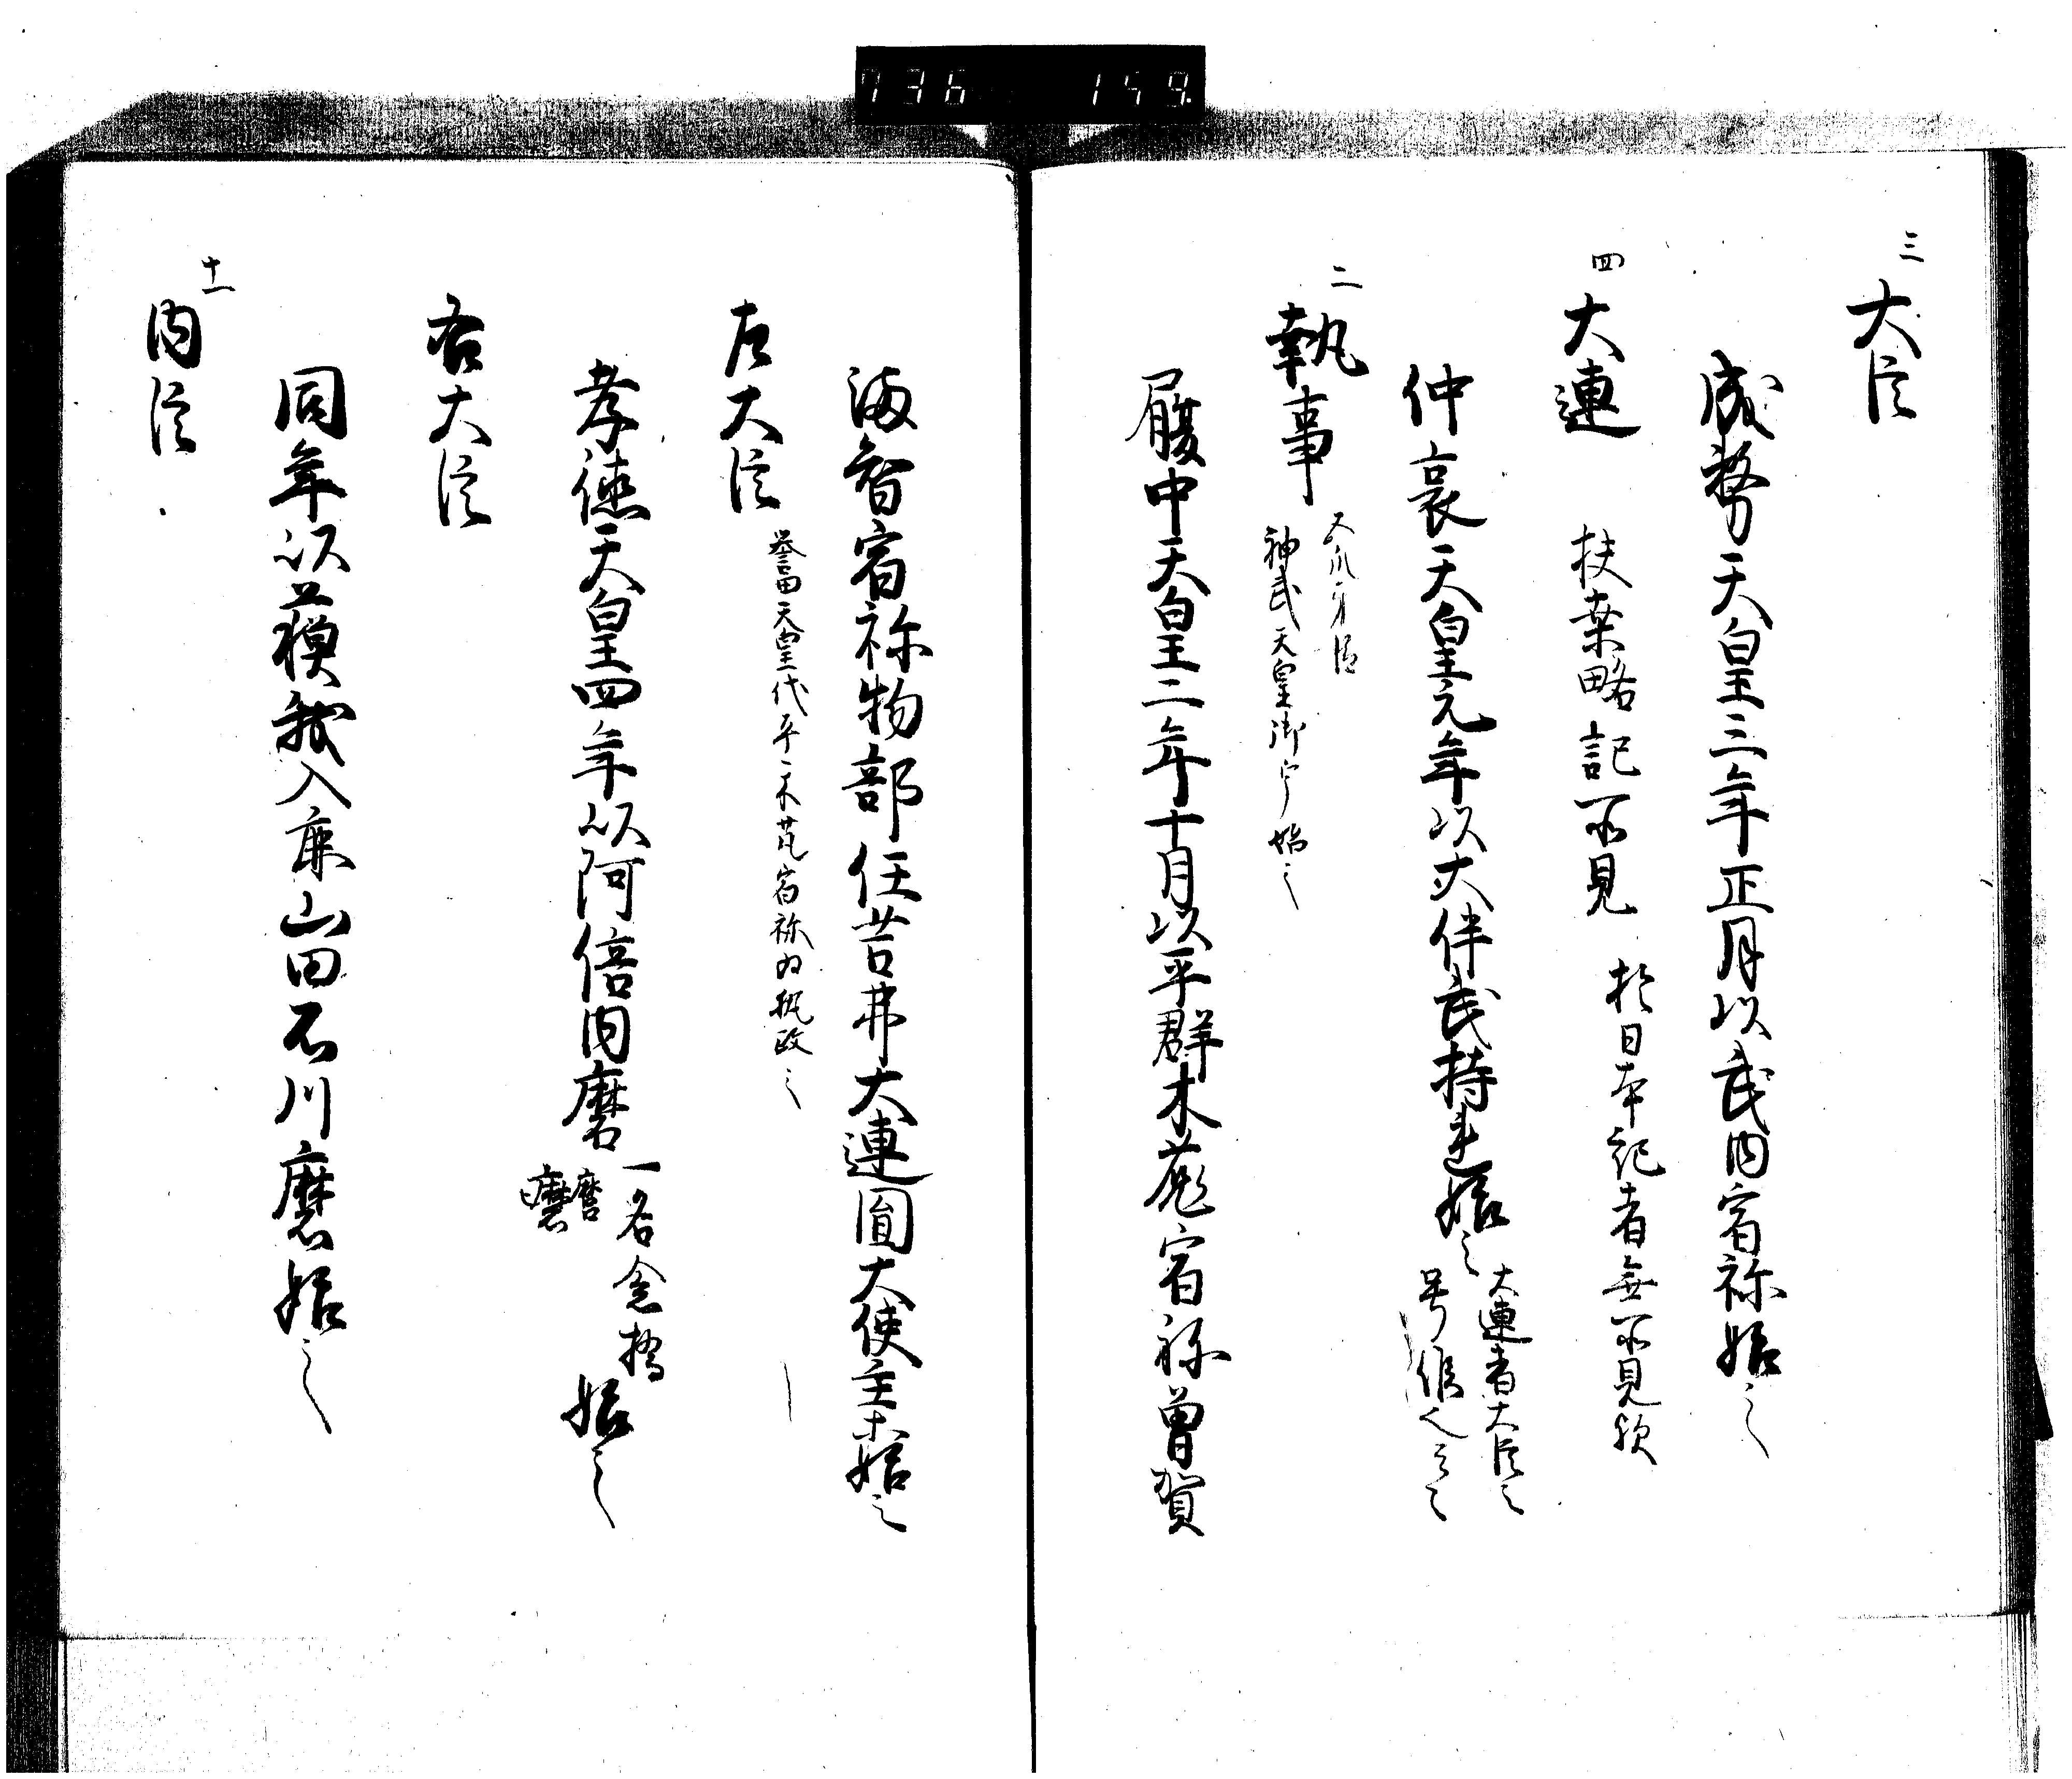 736 159
三 大臣
成務天皇三年正月以武内宿祢始之
四 大連 扶桒略記所見 於日本紀者無所見歟
仲哀天皇元年以大伴武持連始之 大連者大臣之
号候云々
二 執事
神武天皇御宇始之
履中天皇二年十月以平群木菟宿祢曽賀
満智宿祢物部任苔弗大連圓大使主等始之
誉田天皇一代平木菟宿祢為執政之
左大臣
孝徳天皇四年以阿倍内磨 一名念橋
麿 始之
右大臣
同年以蘓我入鹿山田石川磨始之
十一 内臣